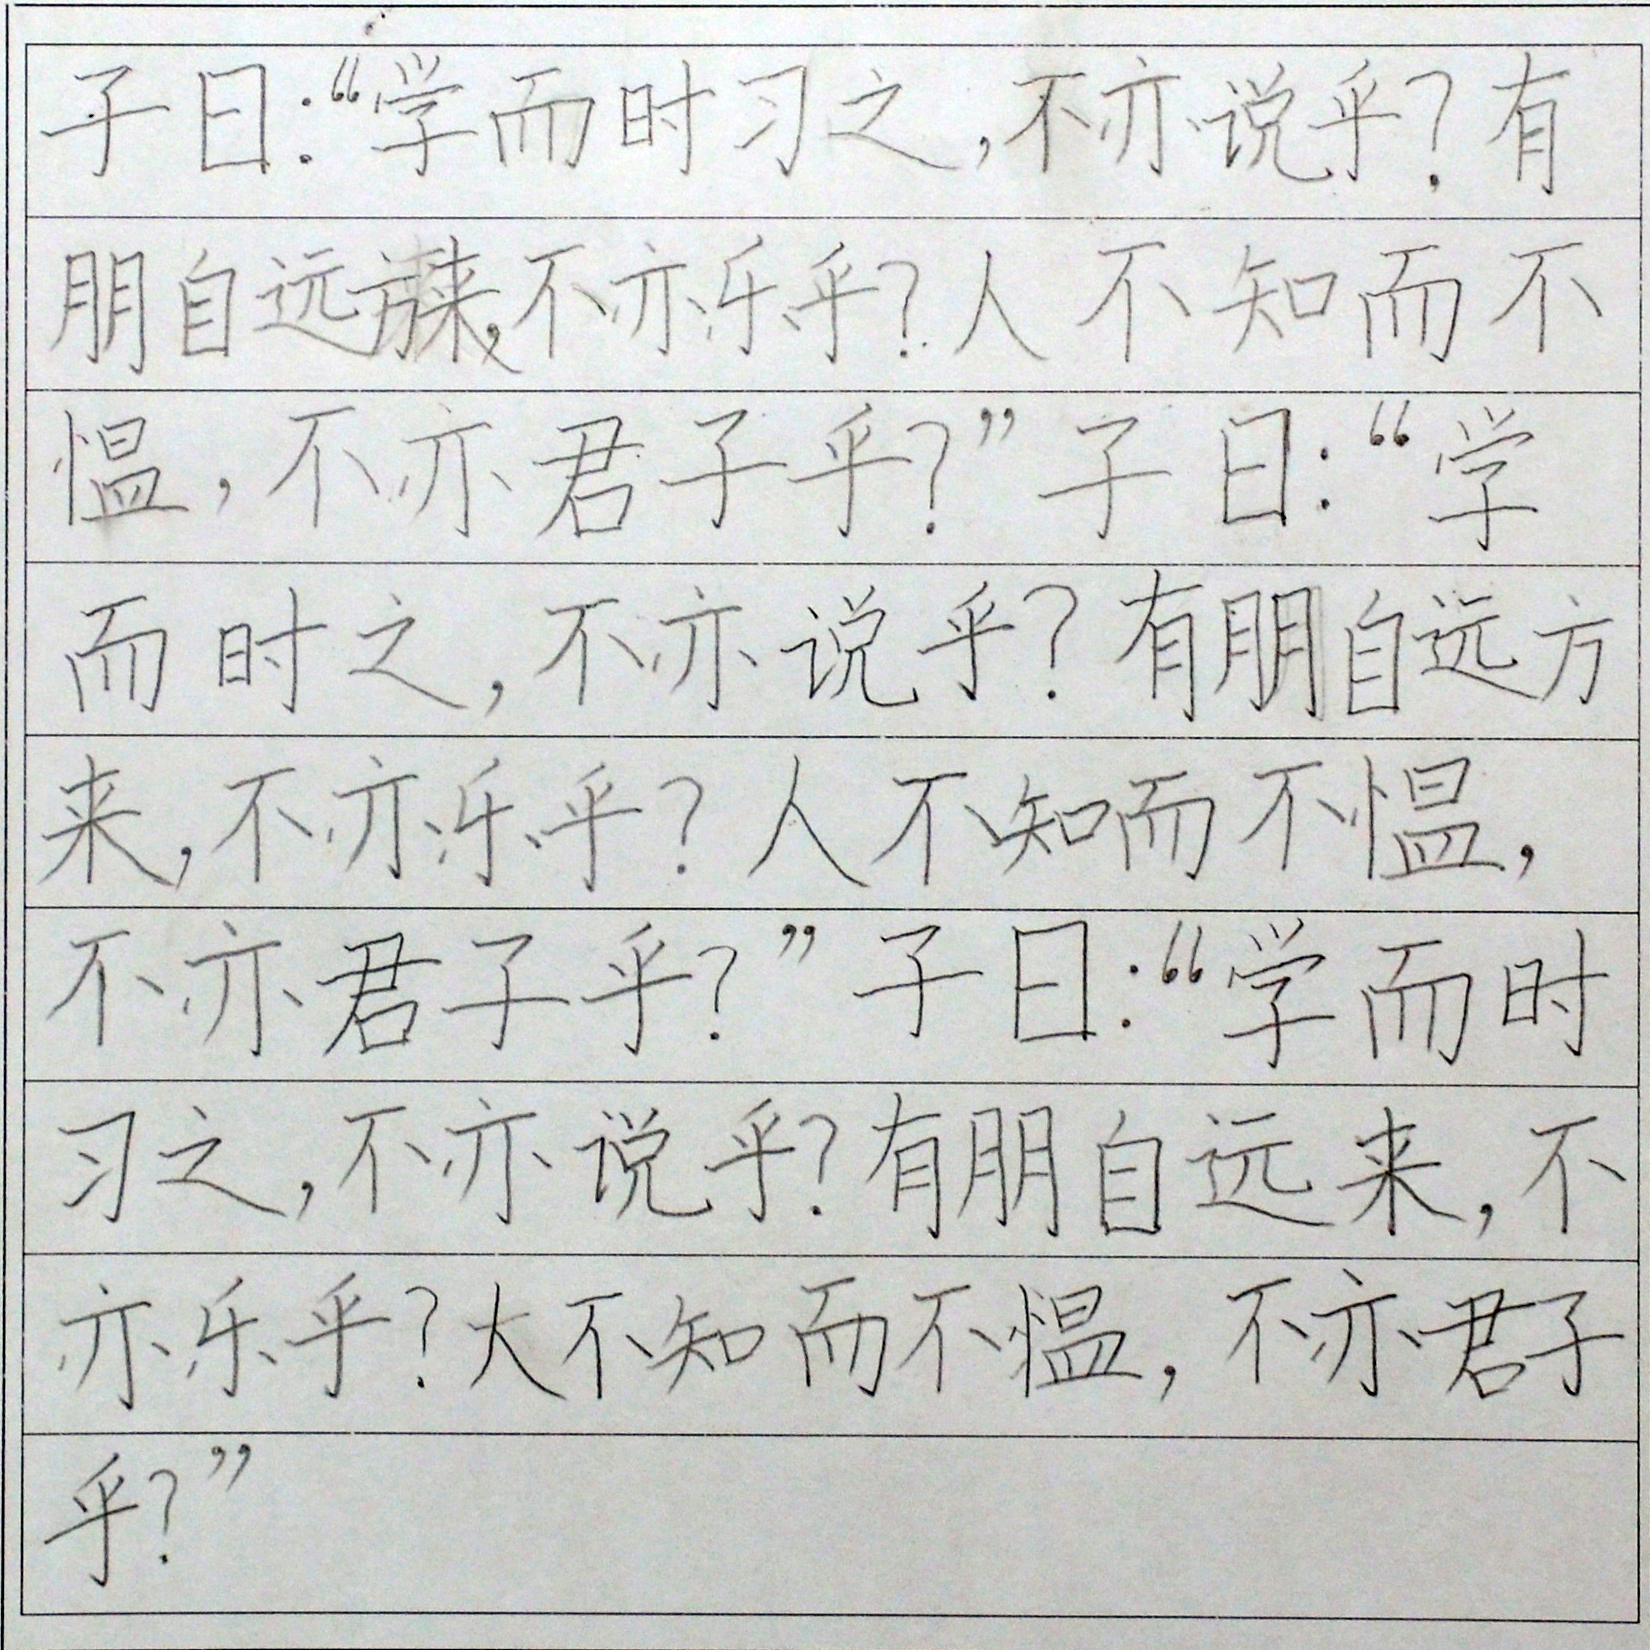 子曰：“学而时习之，不亦说乎？有
朋自远方来，不亦乐乎？人不知而不
愠，不亦君子乎？”子曰：“学
而时之，不亦说乎？有朋自远方
来，不亦乐乎？人不知而不愠，
不亦君子乎？”子曰：“学而时
习之，不亦说乎？有朋自远来，不
亦乐乎？大不知而不愠，不亦君子
乎？”